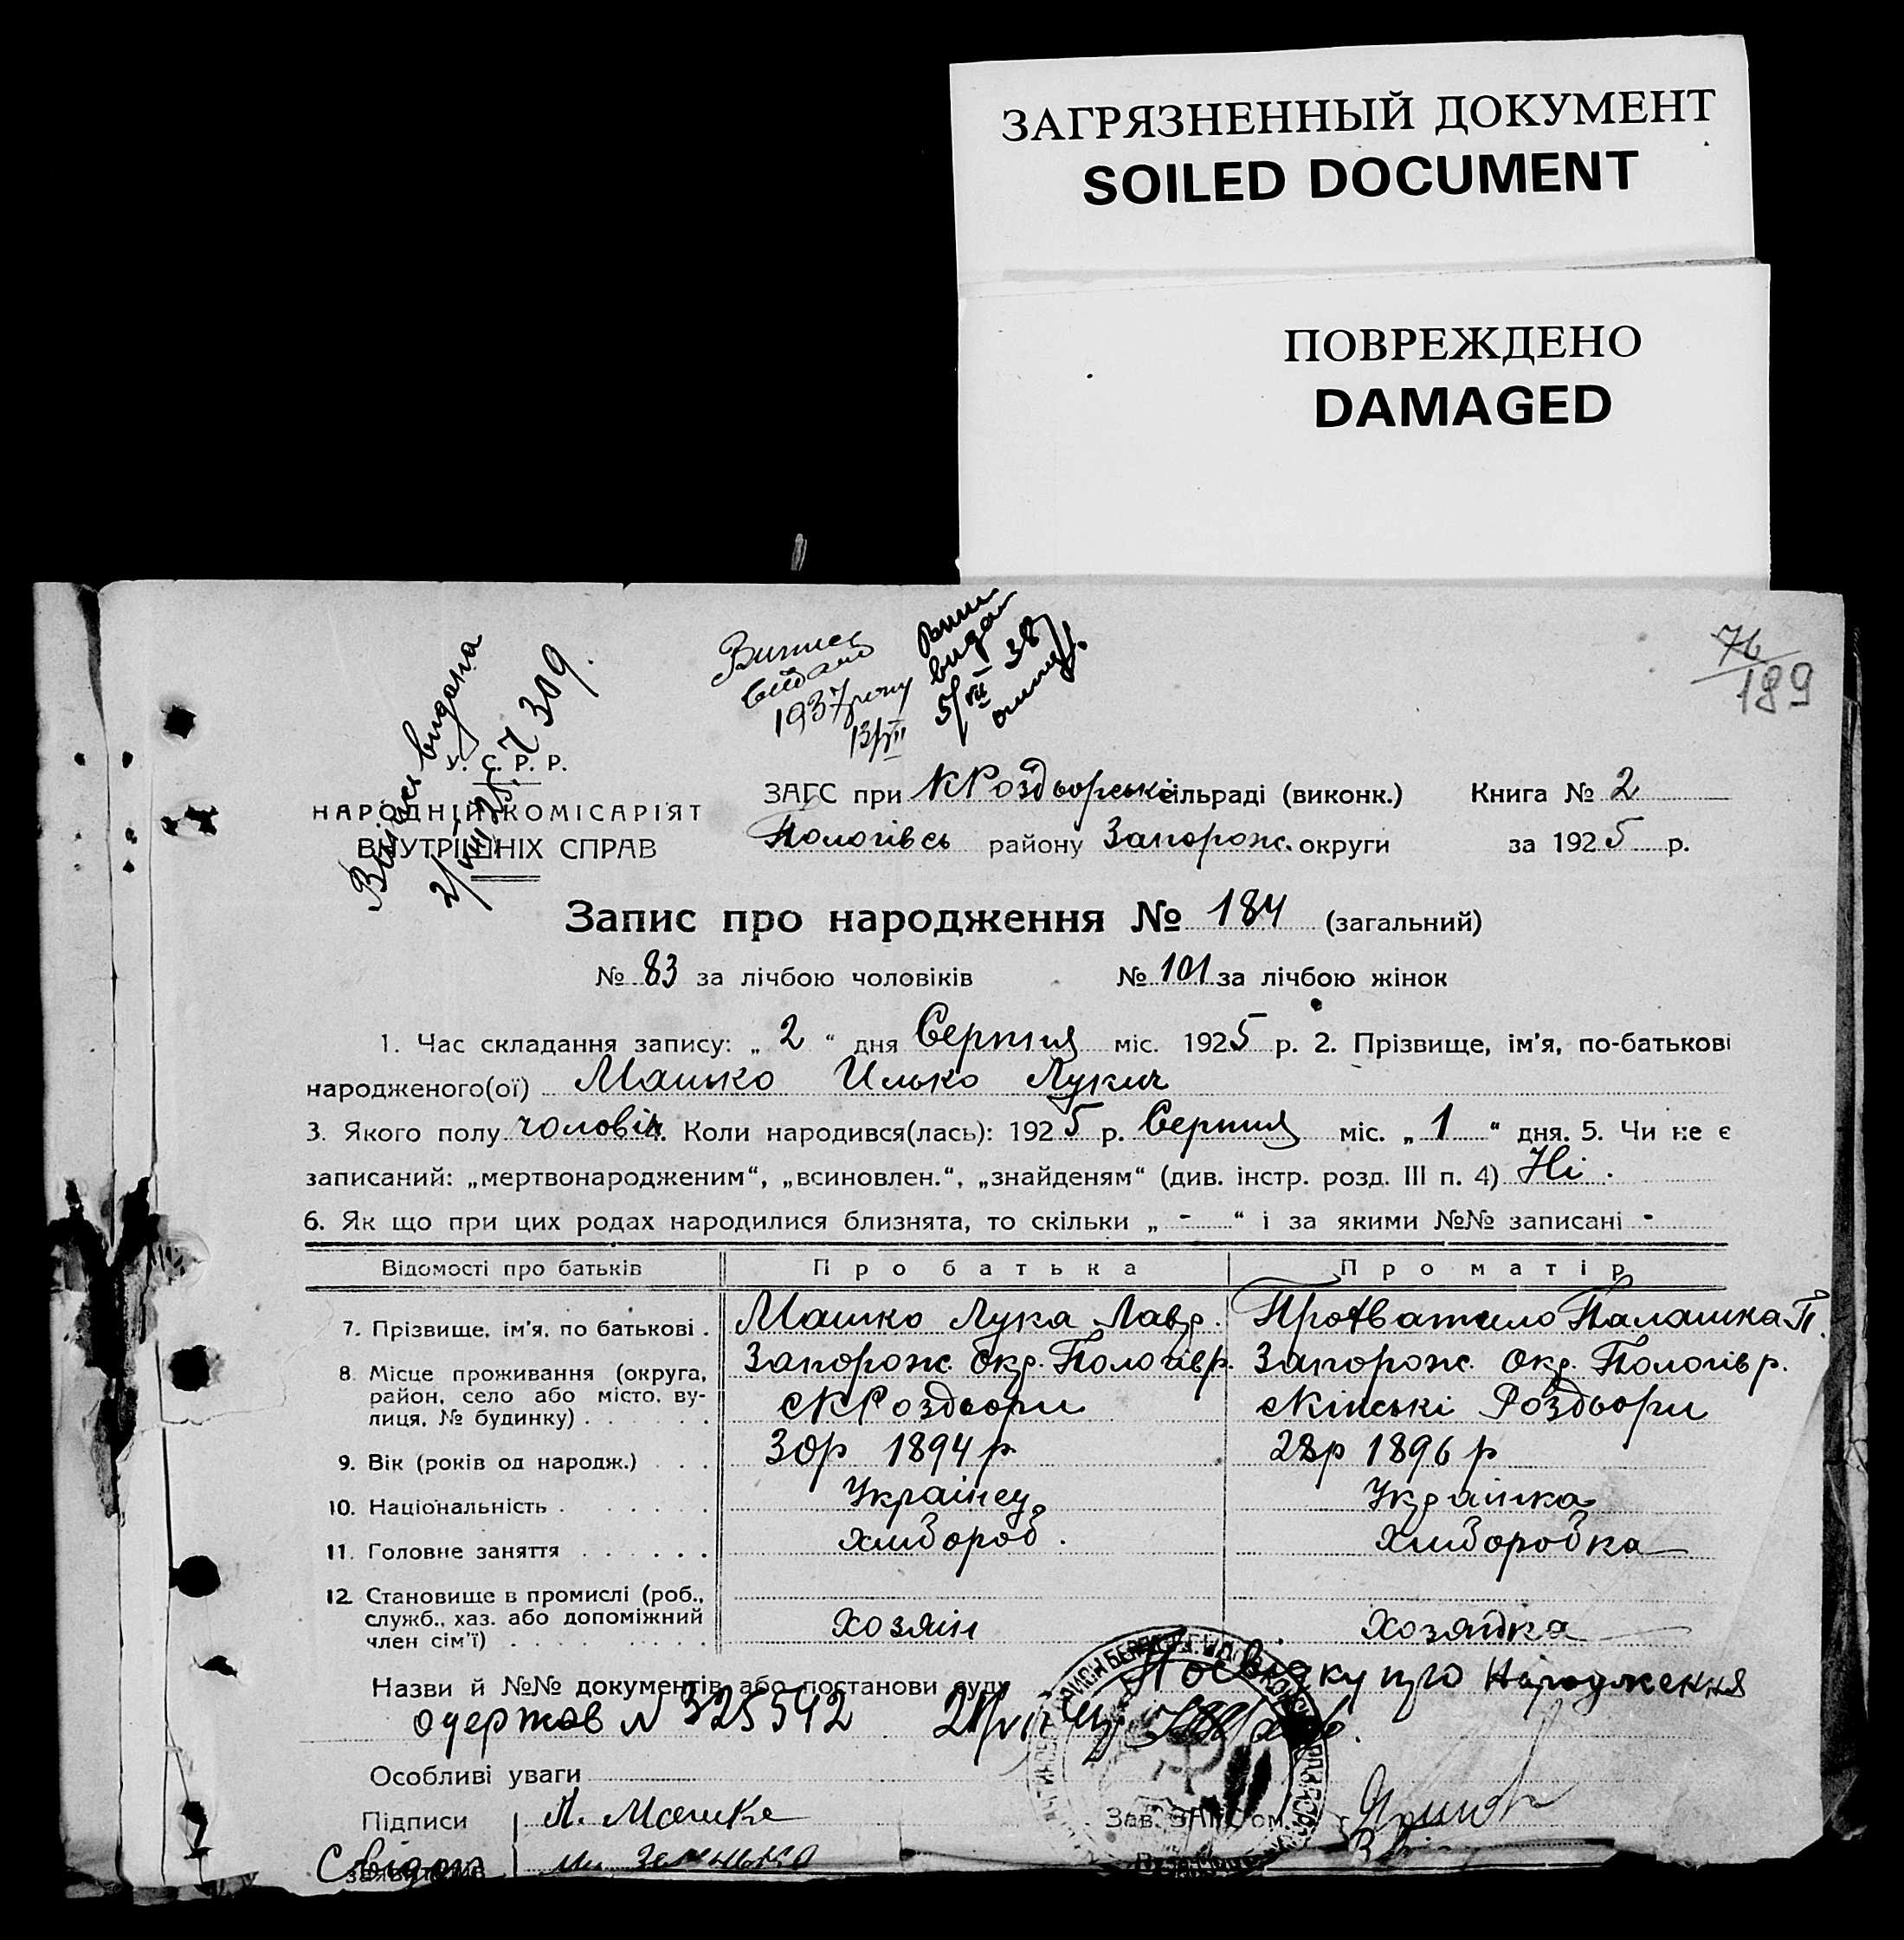 ЗАГРЯЗНЕННЫЙ ДОКУМЕНТ
SOILED DOCUMENT
ПОВРЕЖДЕНО
DAMAGED
76
189
Випись видана
309
Випись
видано
1937 року
видан
38
У. С. Р. Р.
НАРОДНІЙ КОМІСАРІЯТ
ВНУТРІШНІХ СПРАВ
ЗАГС при К Роздорські сільраді (виконк.) Книга № 2
Пологівсь району Запорож. округи за 1925 р.
Запис про народження № 184 (загальний)
№ 83 за лічбою чоловіків № 101 за лічбою жінок
1. Час складання запису: „ 2 “ дня Серпня міс. 1925 р. 2. Прізвище, ім'я, по-батькові
народженого(ої) Машко Илько Лукич
3. Якого полу чоловік 4. Коли народився(лась): 1925 р. Серпня міс. „ 1 “ дня. 5. Чи не є
записаний: „мертвонародженим“, „всиновлен.“, „знайденям“ (див. інстр. розд. III п. 4) Ні.
6. Як що при цих родах народилися близнята, то скільки „ - “ і за якими №№ записані -
Відомості про батьків Про батька Про матір
7. Прізвище, ім'я, по батькові . Машко Лука Лавр. Палашка П.
8. Місце проживання (округа, район, село або місто, ву-лиця, № будинку) Запорож. Окр. Пологів р. Запорож. Окр. Пологів р.
с К Роздори с Кінські Роздори
9. Вік (років од народж.) . . . 30р 1894 р. 28р 1896 р
10. Національність . . . . . Українец Українка
11. Головне заняття . . . . . . хлибороб. Хлиборобка
12. Становище в промислі (роб., служб., хаз. або допоміжний член сім'ї) Хозяін Хозяйка
Назви й №№ документів або постанови суду Посвідку про народження
одержав № 325542
Особливі уваги
Підписи Л. Машко Зав. ЗАГС'ом
заявників
Свідки